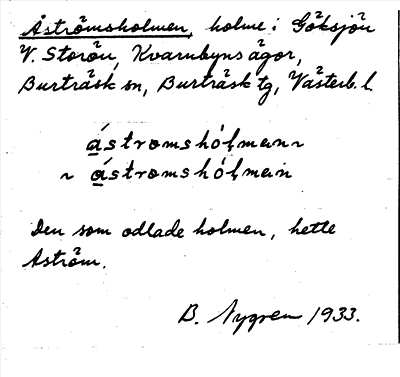 Åströmsholmen, holme i Göksjön
V. Storön, Kvarnbyns ägor,
Burträsk sn, Burträsk tg, Västerb. l.
ástromshólmɐn ~
~ ástromshólmɐin
Den som odlade holmen, hette
Aström.
B. Nygren 1933.